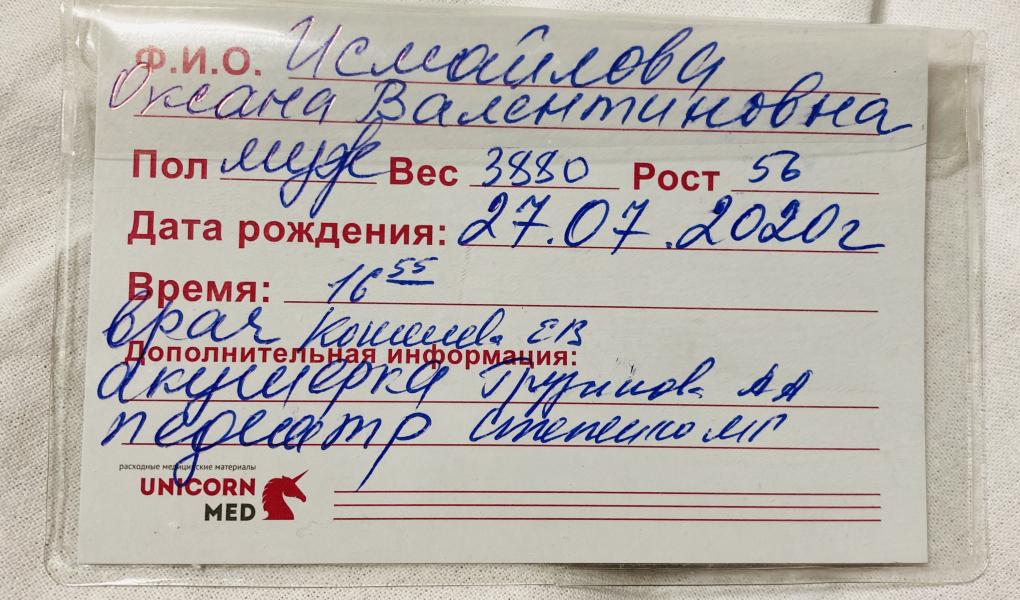 Ф.И.О. Исмайлова
Оксана Валентиновна
Пол муж Вес 3880 Рост 56
Дата рождения: 27.07.2020г
Время: 16 55
врач ЕВ
Дополнительная информация:
акушерка АА
педиатр МГ
расходные медицинские материалы
UNICORN
MED